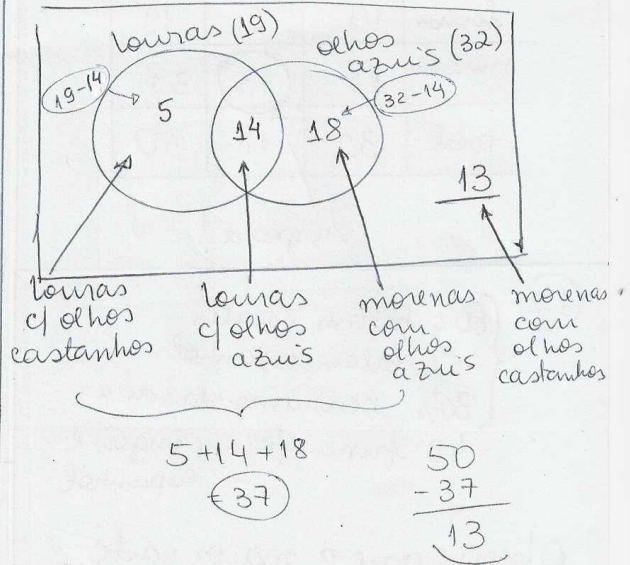 louras (19)
olhos
azuis (32)
19-14
5
14
18
32-14
13
louras
c/ olhos
castanhos
louras
c/ olhos
azuis
morenas
com
olhos
azuis
morenas
com
olhos
castanhos
5+14+18
= 37
50
- 37
13